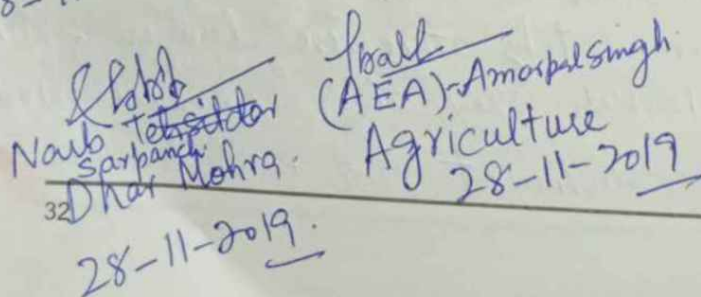 Naib Tehsildar
Sarpanch
Dhar Mohra.
32
28-11-2019.
(AEA)-Amarpalsingh
Agriculture
28-11-2019